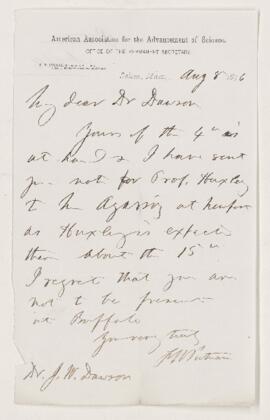 American Association for the Advancement of Science.
OFFICE OF THE PERMANENT SECRETARY.
Salem, Mass. Aug 8" 1876
My dear Dr Dawson
Yours of the 4th is
at hand & I have sent
your note for Prof. Huxley
to Mr Agassiz at Newport
as Huxley is expected
there about the 15th
I regret that you are
not to be present
at Buffalo
Yours very truly
F W Putnam
Dr. J. W. Dawson